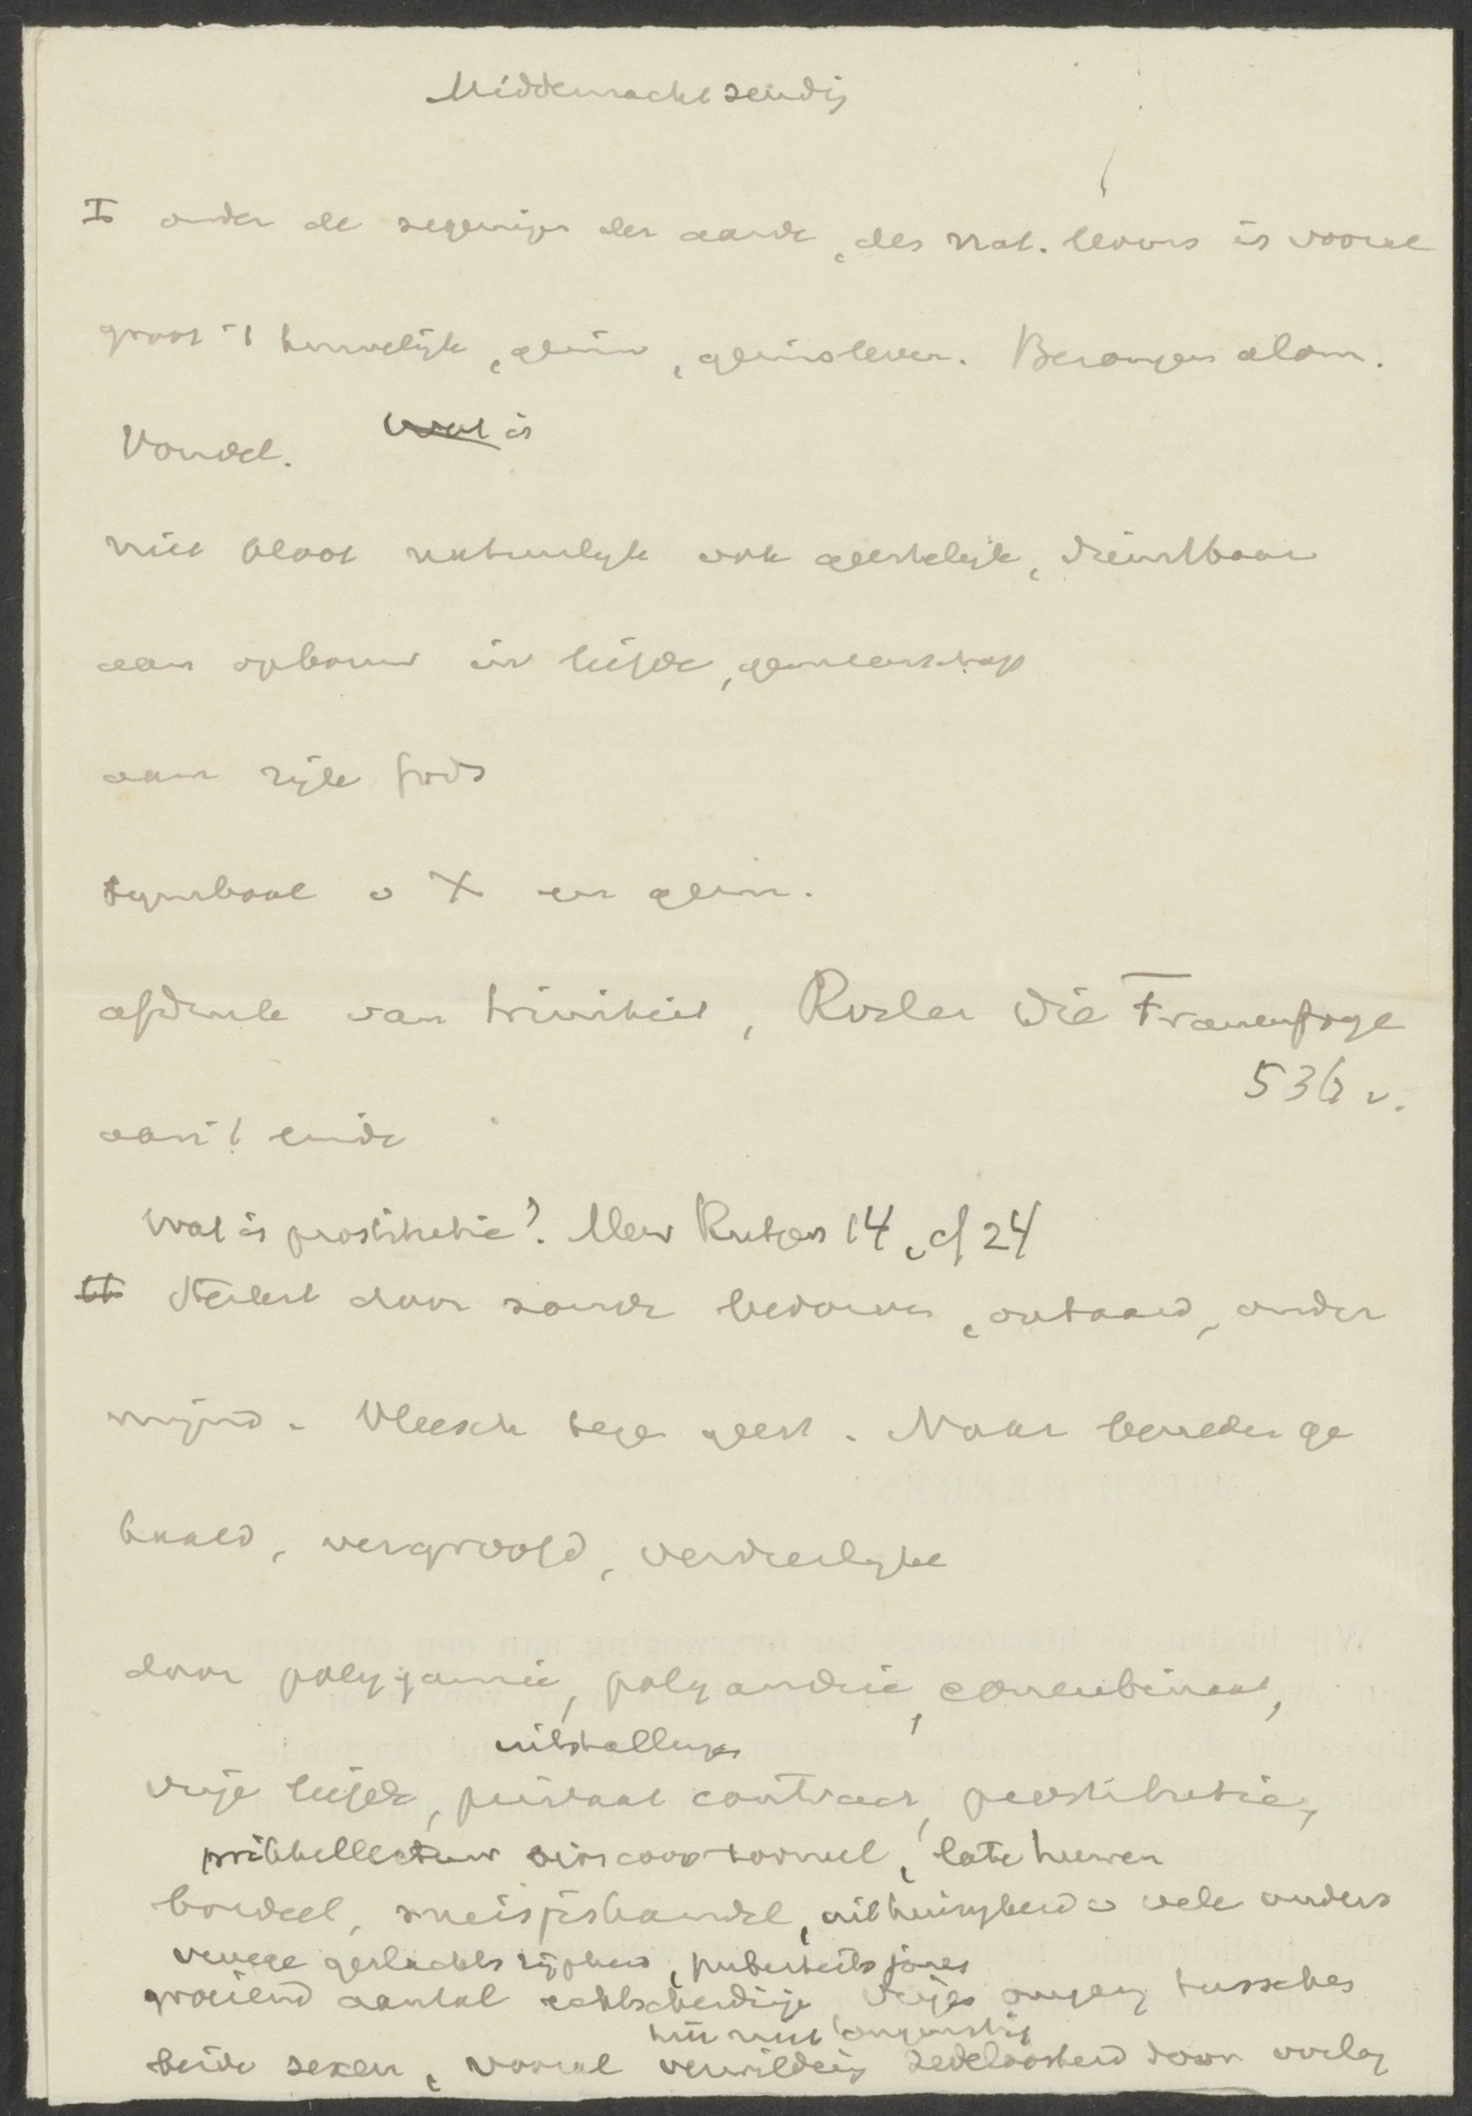 Middernachtzending
I onder de zegeningen der aarde, des nat. levens is vooral
groot 't huwelijk, gezin, gezinsleven. Bezongen alom.
Vondel. Wat is
niet bloot natuurlijk ook geestelijk, dienstbaar
aan opbouw in liefde, gemeenschap
aan rijk Gods
symbool v X en gem.
afdruk van triniteit, Rosler Die Frauenfrage
536 v.
aan 't einde
Wat is prostitutie? Mevr Rutgers 14, cf 24
II Stelsel door zonde bedorven, ontaard, onder
mijnd. Vleesch tege geest. Naar beneden ge
haald, vergroofd, verdierlijkt
door polygamie, polyandrie, concubinaat,
uitstallingen
vrije liefde, privaat contract, prostitutie,
prikkellectuur bioscoop tooneel, late huwen
bordeel, meisjeshandel, uithuizigheid v vele anders
vroege geslachtsrijpheid, puberteits jaren
groeiend aantal echtscheidinge vrije omgang tusschen
beide sexen, vooral verwildering zedeloosheid door oorlog